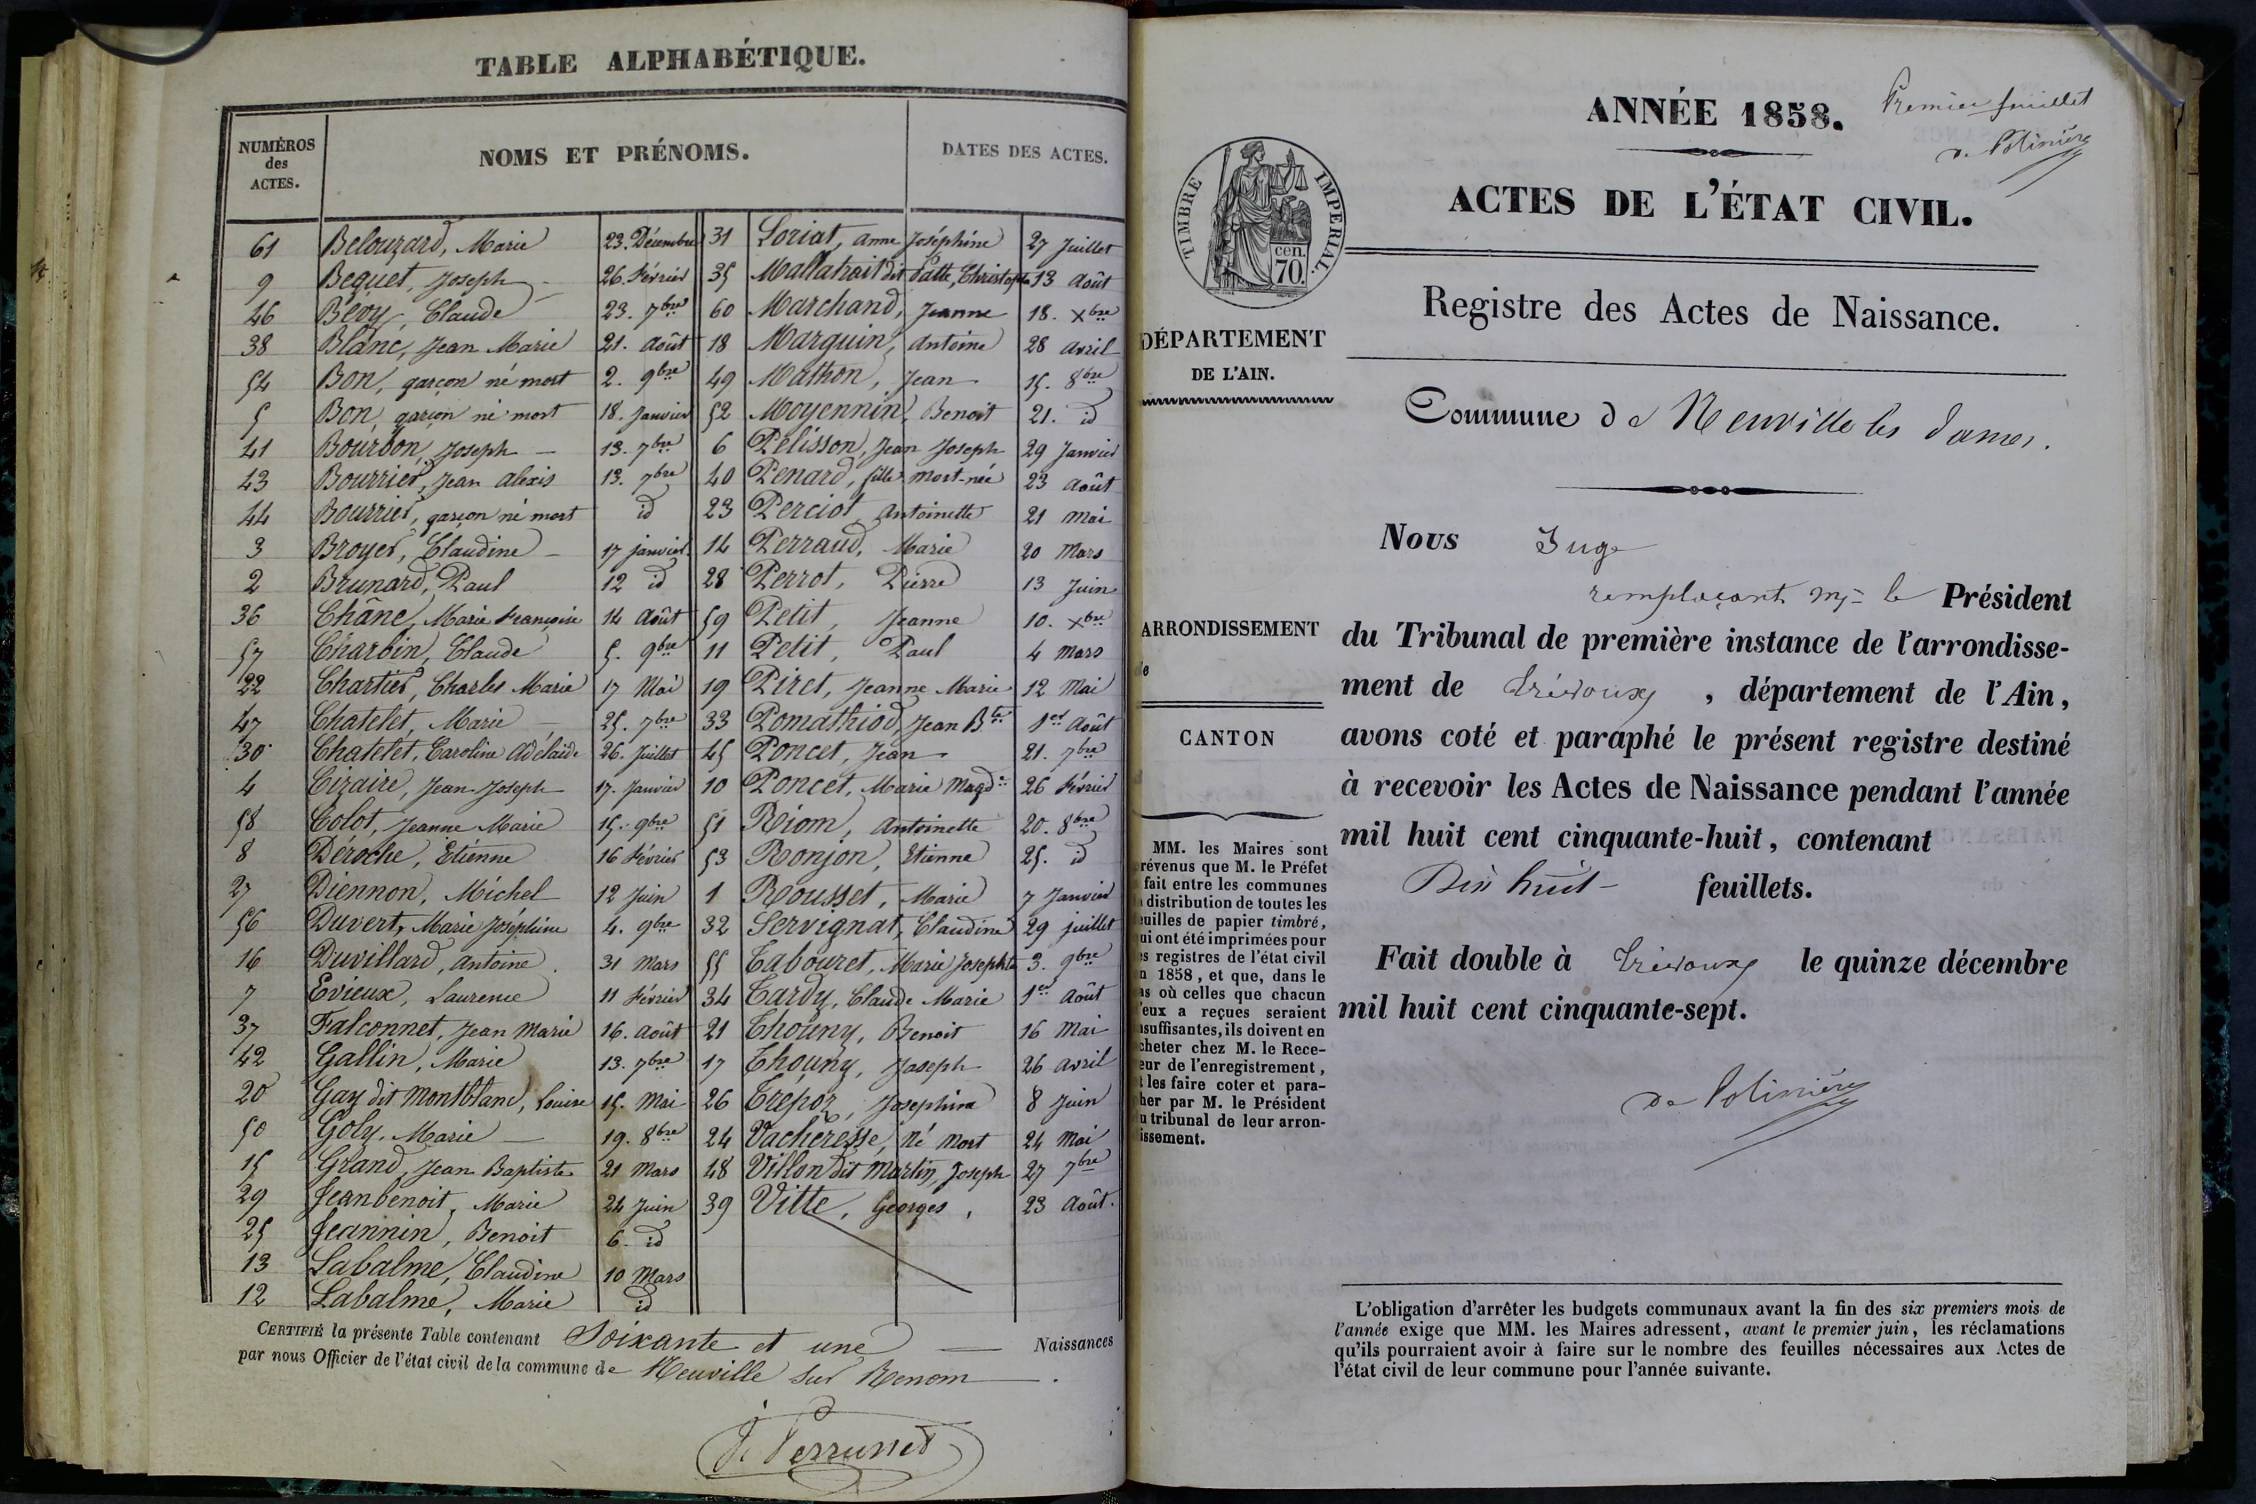 TABLE ALPHABÉTIQUE.
NUMÉROS
des
ACTES.
NOMS ET PRÉNOMS.
DATES DES ACTES.
61 Belouzard, Marie 23. Décembre
9 Bequet, Joseph 26. Février
46 Bévy, Claude 23. 7bre
38 Blanc, Jean Marie 21. Août
54 Bon, garçon né mort 2. 9bre
5 Bon, garçon né mort 18. Janvier
41 Bourbon, Joseph 13. 7bre
43 Bourrier, Jean Alexis 13. 7bre
44 Bourrier, garçon né mort id
3 Broyer, Claudine 17 Janvier
2 Brunard, Paul 12 id
36 Châne, Marie Françoise 14 Août
57 Charbin, Claude 5. 9bre
22 Chartier, Charles Marie 17 Mai
47 Chatelet, Marie 25. 7bre
30 Chatelet, Caroline Adélaïde 26. Juillet
4 Cizaire, Jean Joseph 17. Janvier
58 Colot, Jeanne Marie 15. 9bre
8 Déroche, Etienne 16 Février
27 Diennon, Michel 12 Juin
56 Duvert, Marie Joséphine 4. 9bre
16 Duvillard, Antoine 31 Mars
7 Evieux, Laurence 11 Février
37 Falconnet, Jean Marie 16. Août
42 Gallin, Marie 13. 7bre
20 Gay dit Montblanc, Louise 15. Mai
50 Goly, Marie 19. 8bre
15 Grand, Jean Baptiste 21 Mars
29 Jeanbenoit, Marie 24 Juin
25 Jeannin, Benoit 6. id
13 Labalme, Claudine 10 Mars
12 Labalme, Marie id
31 Loriat, Anne Joséphine 27 Juillet
35 Mallatrait dit Patte, Christophe 13 Août
60 Marchand, Jeanne 18. Xbre
18 Marguin, Antoine 28 Avril
49 Mathon, Jean 15. 8bre
52 Moyennin, Benoit 21. id
6 Pélisson, Jean Joseph 29 Janvier
40 Penard, fille mort-née 23 Août
23 Perciot, Antoinette 21 Mai
14 Perraud, Marie 20 Mars
28 Perrot, Pierre 13 Juin
59 Petit, Jeanne 10. Xbre
11 Petit, Paul 4 Mars
19 Piret, Jeanne Marie 12 Mai
33 Pomathiod, Jean Bte 1er Août
45 Poncet, Jean 21. 7bre
10 Poncet, Marie Magd 26 Février
51 Riom, Antoinette 20. 8bre
53 Ronjon, Etienne 25. id
1 Rousset, Marie 7 Janvier
32 Servignat, Claudine 29 Juillet
55 Tabouret, Marie Josephte 3. 9bre
34 Tardy, Claude Marie 1er Août
21 Thouny, Benoit 16 Mai
17 Thouny, Joseph 26 Avril
26 Trépoz, Josephine 8 Juin
24 Vacheresse, né mort 24 Mai
48 Villon dit Martin, Joseph 27 7bre
39 Vitte, Georges, 23 Août.
CERTIFIÉ la présente Table contenant Soixante et une Naissances
par nous Officier de l'état civil de la commune de Neuville sur Renom.
Premier feuillet
de Polinière
ANNÉE 1858.
ACTES DE L'ÉTAT CIVIL.
TIMBRE IMPERIAL.
cen.
70.
Registre des Actes de Naissance.
DÉPARTEMENT
DE L'AIN.
Commune de Neuville les Dames.
Nous Juge
remplaçant Mr le Président
ARRONDISSEMENT
du Tribunal de première instance de l'arrondisse-
ment de Trévoux, département de l'Ain,
CANTON
avons coté et paraphé le présent registre destiné
à recevoir les Actes de Naissance pendant l'année
mil huit cent cinquante-huit, contenant
Dix huit feuillets.
Fait double à Trévoux le quinze décembre
mil huit cent cinquante-sept.
de Polinière
MM. les Maires sont
révenus que M. le Préfet
fait entre les communes
distribution de toutes les
euilles de papier timbré,
ui ont été imprimées pour
es registres de l'état civil
n 1858, et que, dans le
as où celles que chacun
'eux a reçues seraient
nsuffisantes, ils doivent en
cheter chez M. le Rece-
eur de l'enregistrement,
t les faire coter et para-
her par M. le Président
u tribunal de leur arron-
issement.
L'obligation d'arrêter les budgets communaux avant la fin des six premiers mois de
l'année exige que MM. les Maires adressent, avant le premier juin, les réclamations
qu'ils pourraient avoir à faire sur le nombre des feuilles nécessaires aux Actes de
l'état civil de leur commune pour l'année suivante.